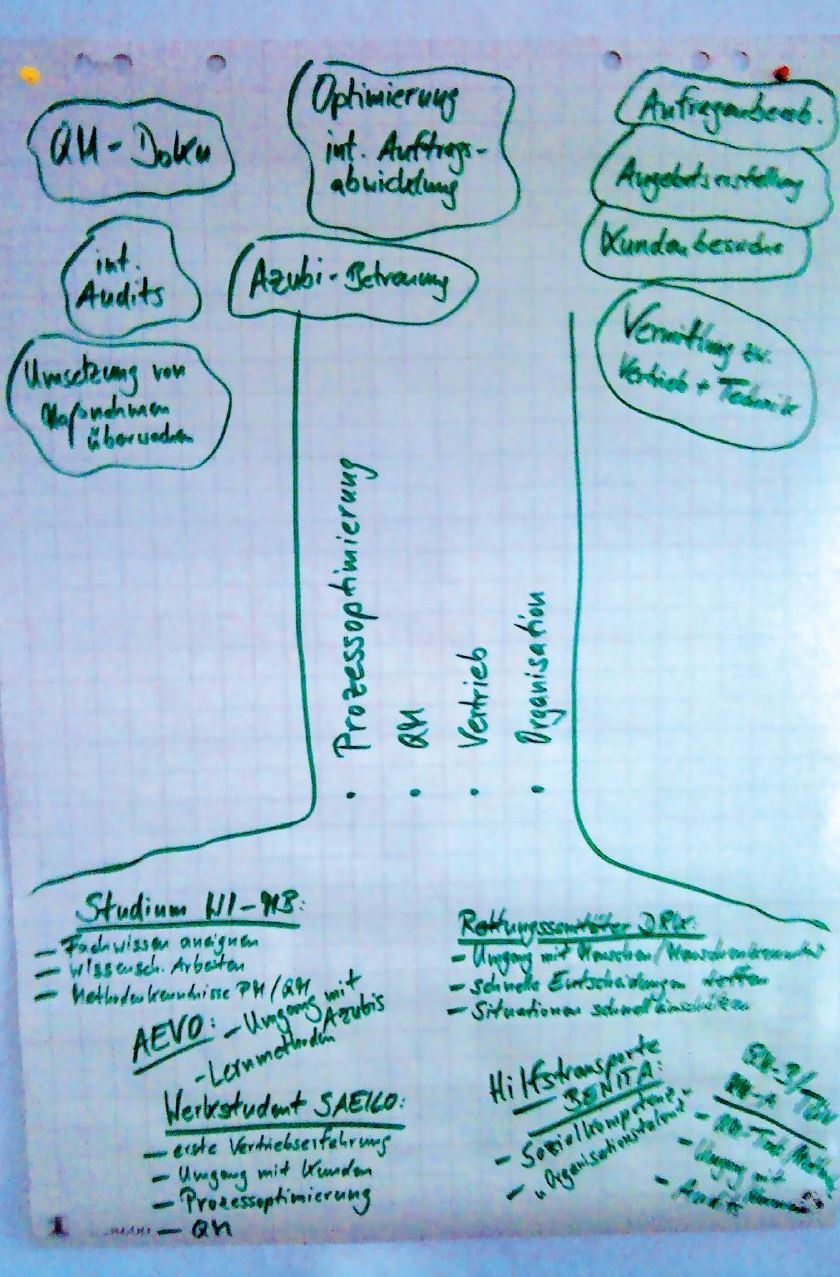 QM-Doku
Optimierung
int. Auftrags-
abwicklung
Anfragenbearb.
Angebotserstellung
Kundenbesuche
int.
Audits
Azubi-Betreuung
Vermittlung zw.
Vertrieb + Technik
Umsetzung von
Maßnahmen
überwachen
• Prozessoptimierung
• QM
• Vertrieb
• Organisation
Studium WI-MB:
- Fachwissen aneignen
- wissensch. Arbeiten
- Methodenkenntnisse PM/QM
AEVO: - Umgang mit
Azubis
- Lernmethoden
Werkstudent SAEILO:
- erste Vertriebserfahrung
- Umgang mit Kunden
- Prozessoptimierung
- QM
Rettungssanitäter DRK:
- Umgang mit Menschen/Menschenkenntnis
- schnelle Entscheidungen treffen
- Situationen schnell einschätzen
Hilfstransporte
BENITA:
- Sozialkompetenz
- Organisationstalent
QM-B/
QM-A
- Umgang mit
- Audits